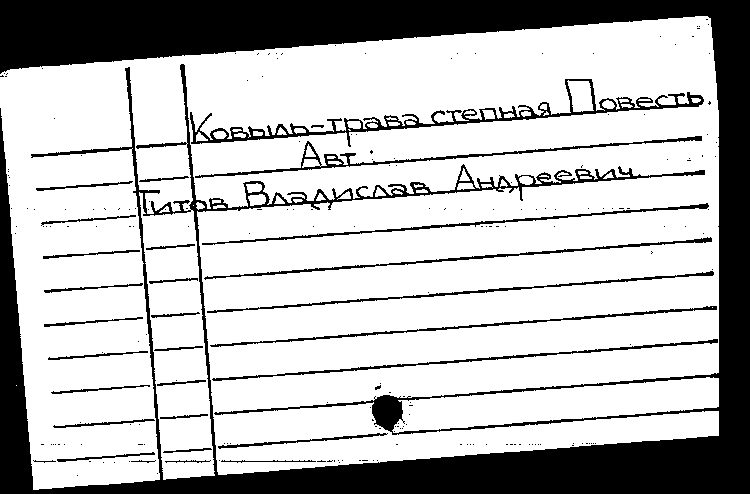 Ковыль-трава степная Повесть.
Авт.:
Титов Владислав Андреевич